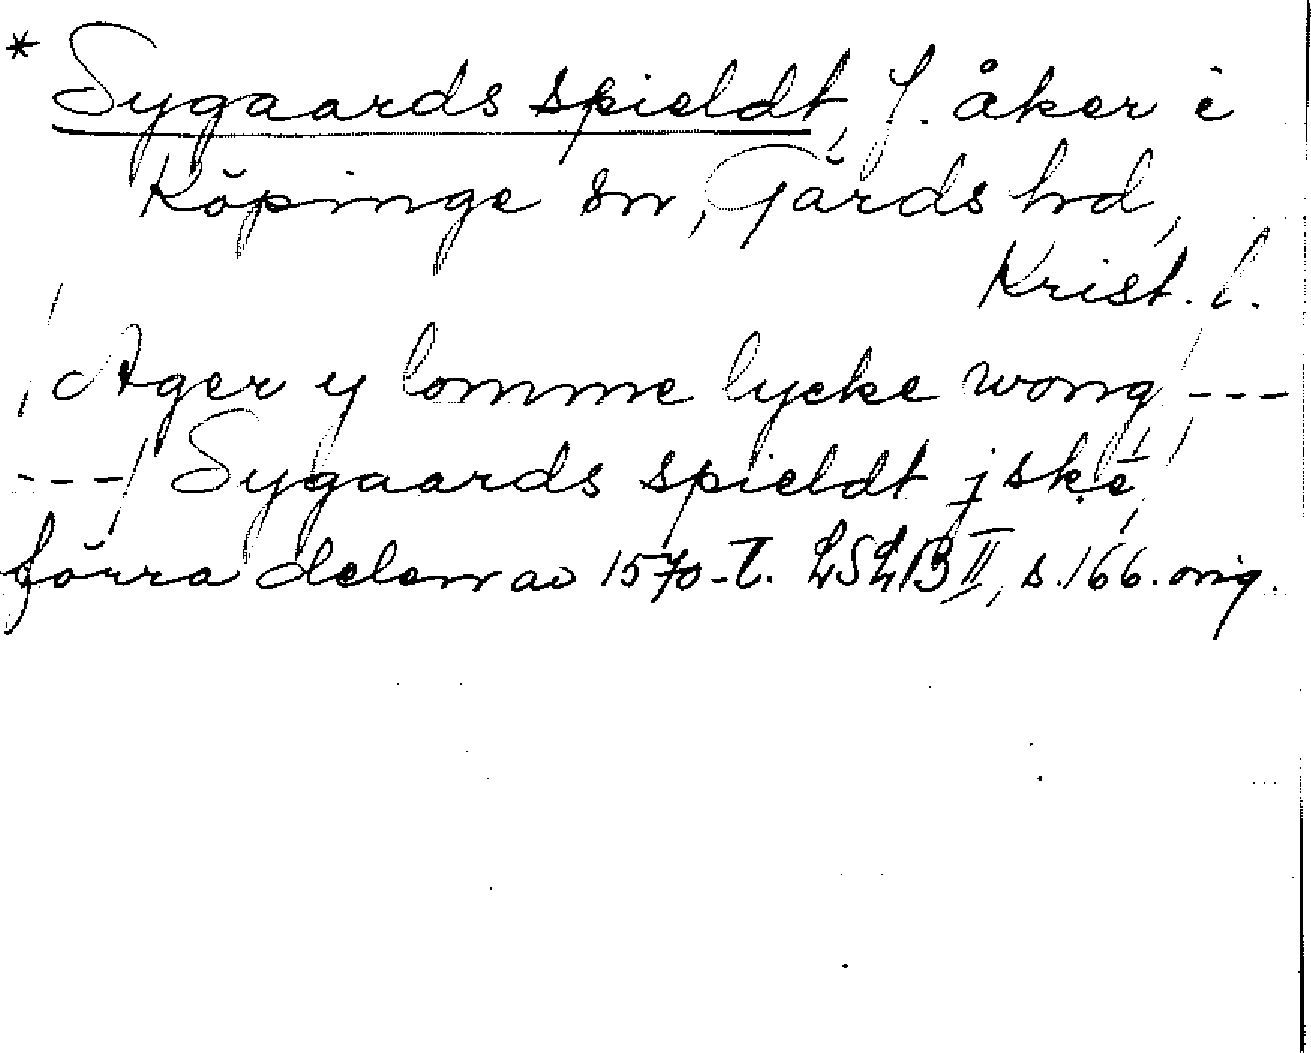 * Sygaards spieldt, f. åker i
Köpinge sn, Gärds hd,
Krist. l.
/ Ager y lomme lycke wong / ---
--- / Sygaards spieldt j skè /
förra delen av 1570-t. LSLB II, s. 166. orig.